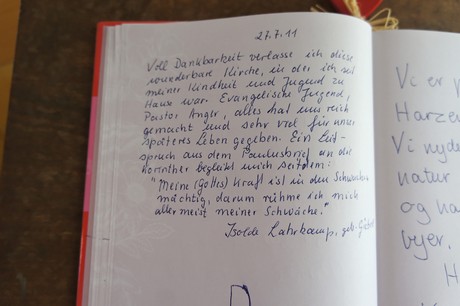 27.7.11
Voll Dankbarkeit verlasse ich diese
wunderbare Kirche, in der ich seit
meiner Kindheit und Jugend zu
Hause war. Evangelische Jugend,
Pastor Anger, alles hat uns reich
gemacht und sehr viel für unser
späteres Leben gegeben. Ein Leit-
spruch aus dem Paulusbrief an die
Korinther begleitet mich seitdem:
"Meine (Gottes) Kraft ist in den Schwachen
mächtig, darum rühme ich mich
aller meist meiner Schwäche."
Isolde Lahrkamp, geb.
Vi er
Harze
Vi nyde
natur
og na
byer.
H